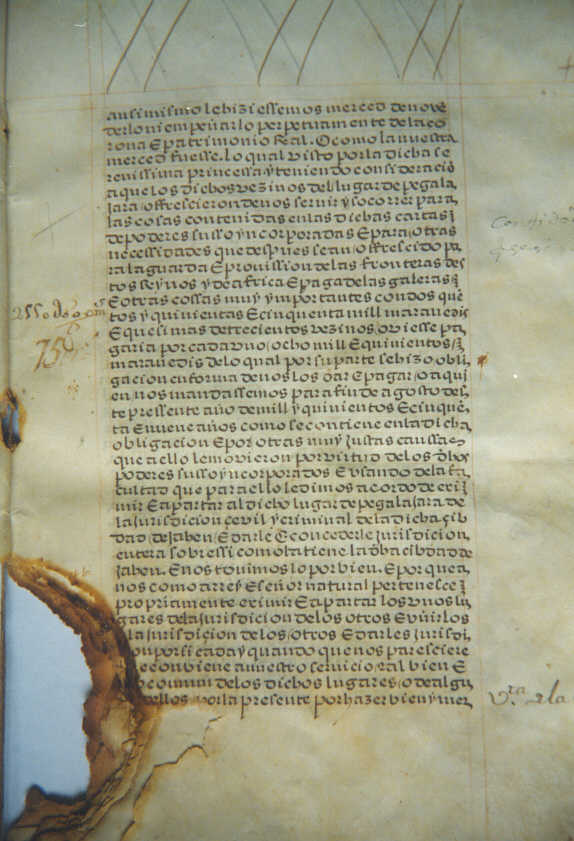 ansimismo le hiziessemos merced de no ve
derlo ni empeñarlo perpetuamente de la co
rona E patrimonio Real. O como la nuestra
merced fuesse. lo qual visto por la dicha se
renissima princessa y teniendo consideraciō
a que los dichos vezinos del lugar de pegala
jara offrescieron de nos servir y socorrer para
las cosas contenidas en las dichas cartas z
de poderes susso yncorporadas E para otras
necessidades que despues se an offrescido pa
ra la guarda E provission de las fronteras des
tos reynos y de africa E paga de las galeras z
E otras cossas muy ymportantes con dos quē
tos y quinientas E cinquenta mill maravedis
E que si mas de trecientos vezinos oviesse pa
garia por cada vno ocho mill E quinientos z
maravedis de lo qual por su parte se hizo obli
gacion en forma de nos los dar E pagar o a qui
en nos mandassemos para fin de agosto des
te pressente año de mill y quinientos E cinquē
ta E nueve años como se contiene en la dicha
obligacion E por otras muy justas caussas
que a ello le movieron por virtud de los dhos
poderes susso yncorporados E vsando de la fa
cultad que para ello le dimos acordo de exi z
mir E apartar al dicho lugar de pegalajara de
la jurisdicion cevil y criminal de la dicha çib
dad de Jahen E darle E concederle jurisdicion
entera sobre ssi como la tiene la dha cibdad de
Jahen. E nos tovimos lo por bien. E por que a
nos como a rrey E señor natural pertenesce z
propriamente eximir E apartar los vnos lu
gares de la jurisdicion de los otros E vnirlos
la jurisdiçion de los otros E darles jurisdi
on por si cada y quando que nos paresciere
e conbiene a nuestro servicio E al bien E
comun de los dichos lugares o de algu
dellos por la presente por hazer bien y mer